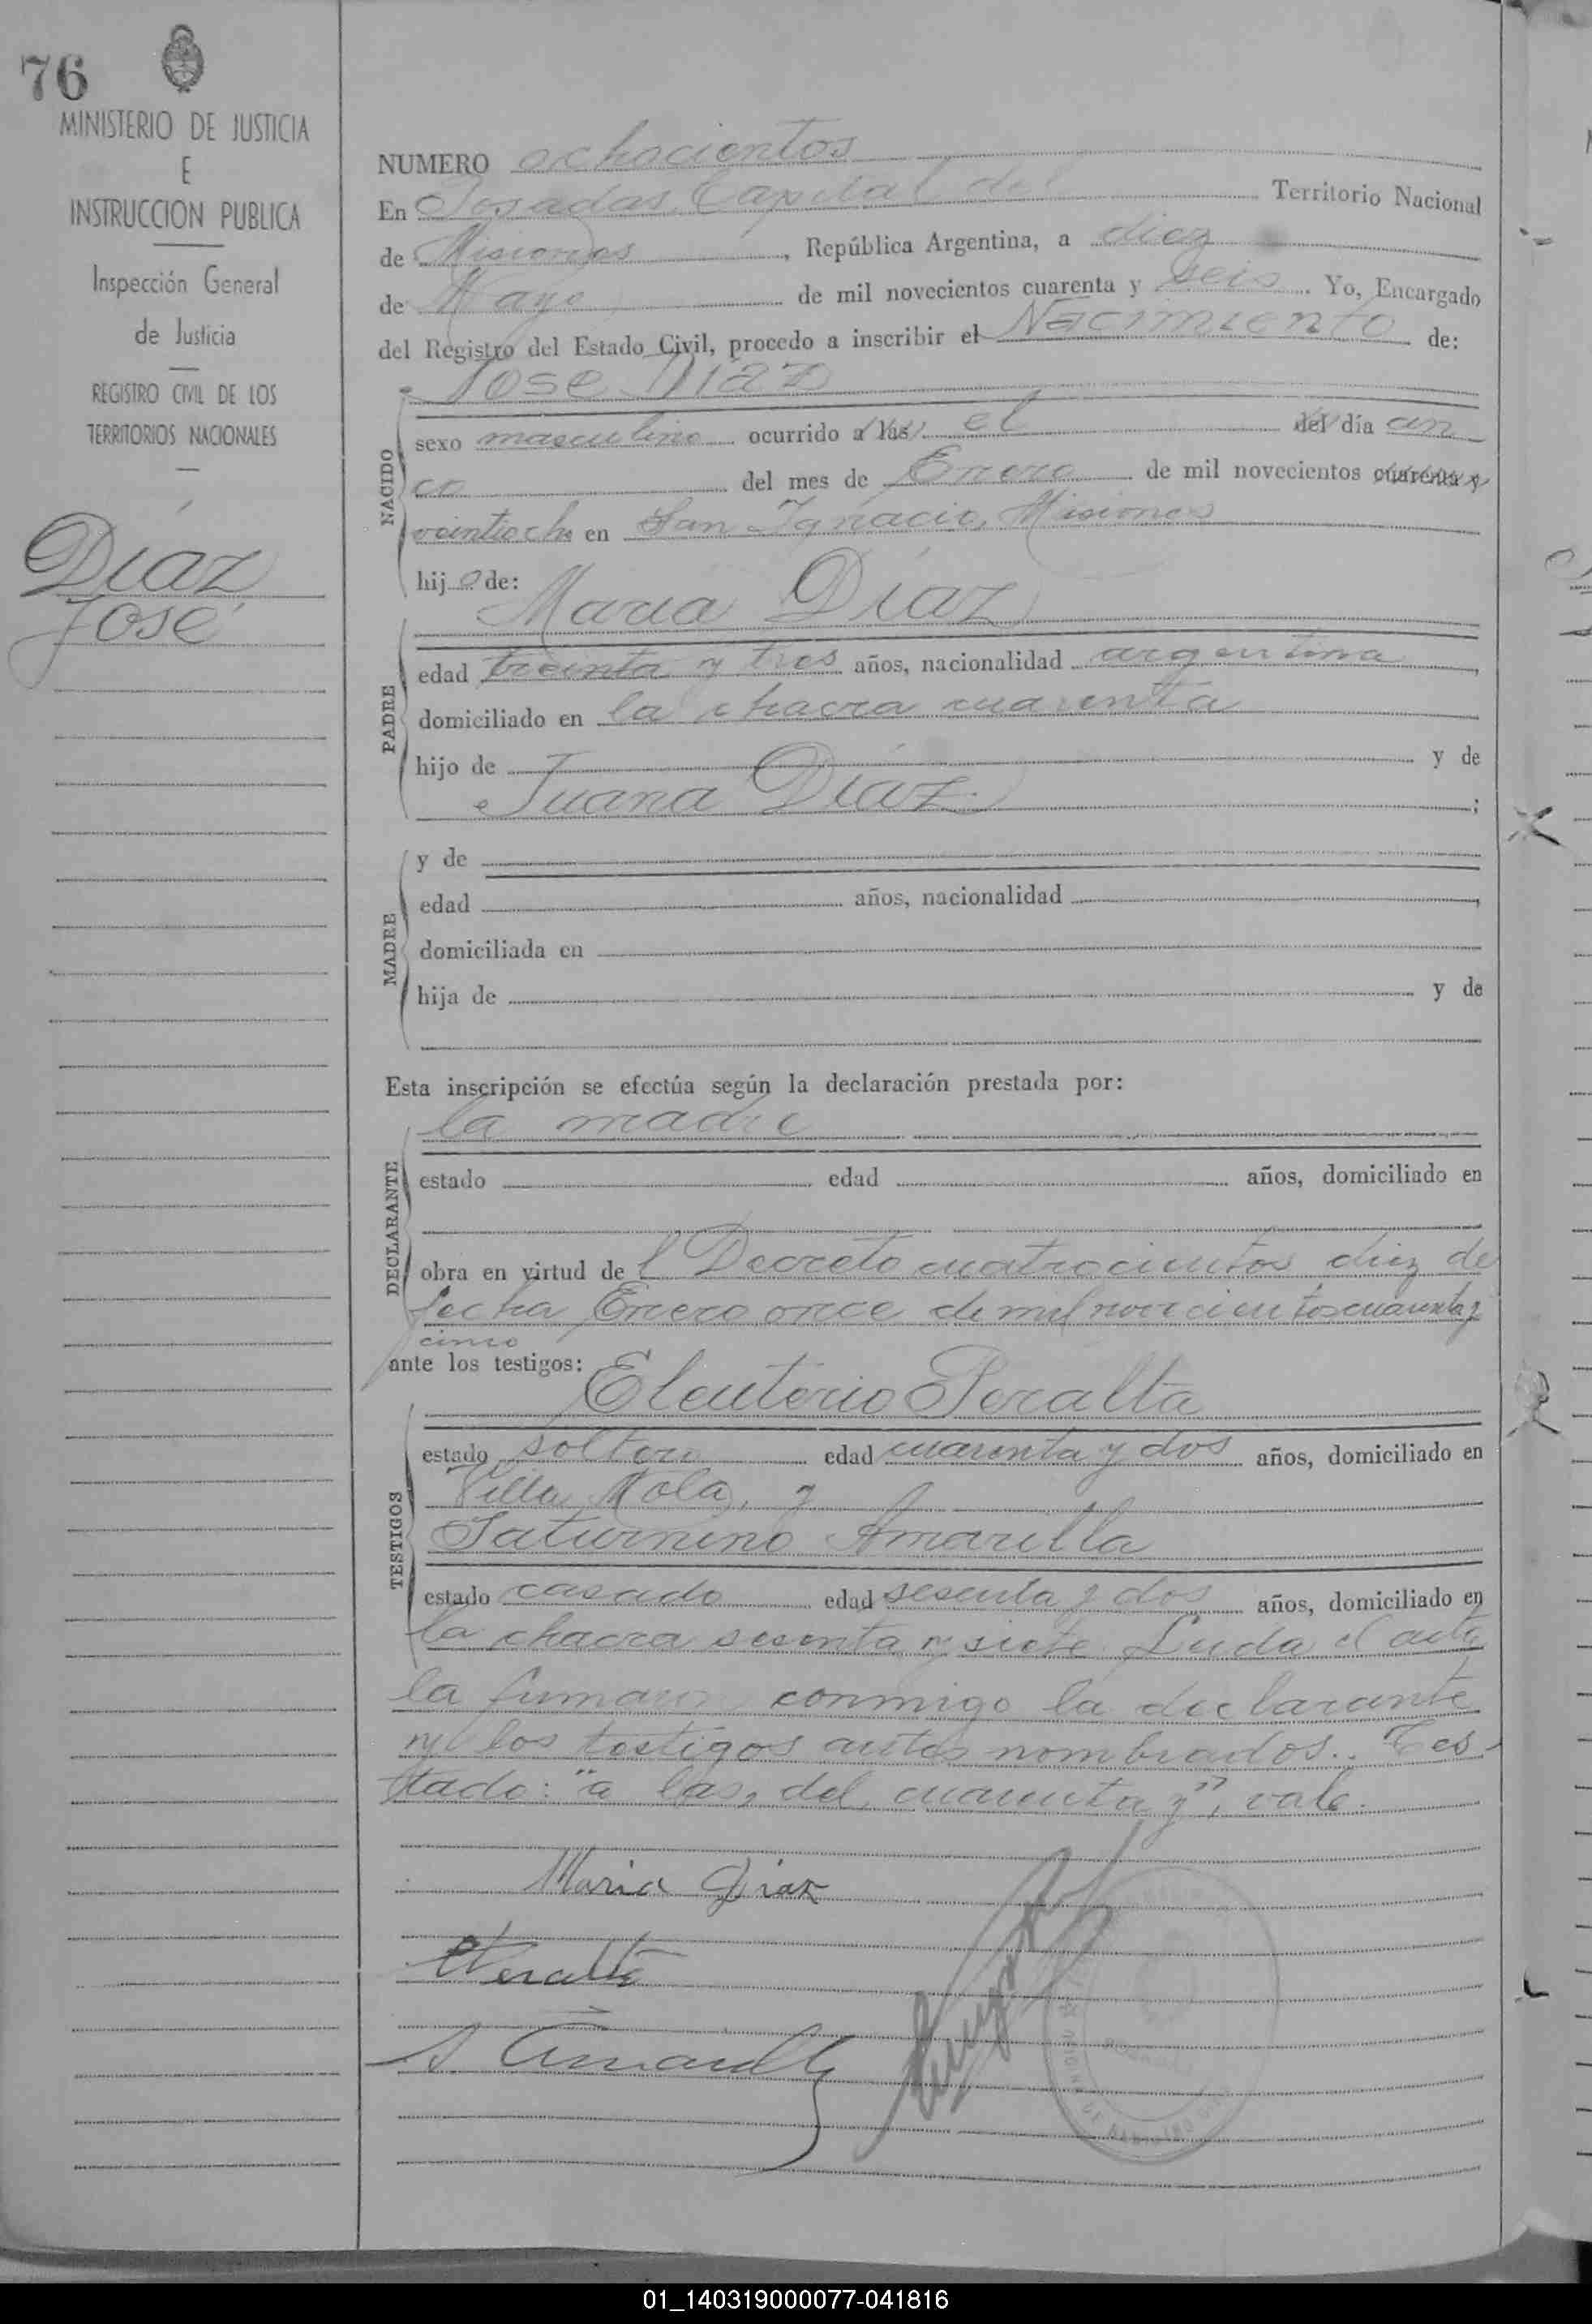 76
MINISTERIO DE JUSTICIA
E
INSTRUCCION PUBLICA
Inspección General
de Justicia
REGISTRO CIVIL DE LOS
TERRITORIOS NACIONALES
Díaz
José
NUMERO ochocientos
En Posadas Capital del Territorio Nacional
de Misiones, República Argentina, a diez
de Mayo de mil novecientos cuarenta y seis. Yo, Encargado
del Registro del Estado Civil, procedo a inscribir el Nacimiento de:
José Díaz
NACIDO
sexo masculino ocurrido a las el del día cin
co del mes de Enero de mil novecientos cuarenta y
veintiocho en San Ignacio, Misiones
hijo de:
María Díaz
PADRE
edad treinta y tres años, nacionalidad argentina
domiciliado en la chacra cuarenta
hijo de y de
Juana Díaz ;
MADRE
y de
edad años, nacionalidad
domiciliada en
hija de y de
Esta inscripción se efectúa según la declaración prestada por:
la madre
DECLARANTE
estado edad años, domiciliado en
obra en virtud de l Decreto cuatrocientos diez de
fecha Enero once de mil novecientos cuarenta y
cinco
ante los testigos:
Eleuterio Peralta
TESTIGOS
estado soltero edad cuarenta y dos años, domiciliado en
Villa Mola, y
Saturnino Amarilla
estado casado edad sesenta y dos años, domiciliado en
la chacra sesenta y siete. Leida el acta
la firmaron conmigo la declarante
y los testigos antes nombrados.. Tes-
tado: "a las, del, cuarenta y", vale.
Maria Diaz
EPeralta
S Amarilla
01_140319000077-041816